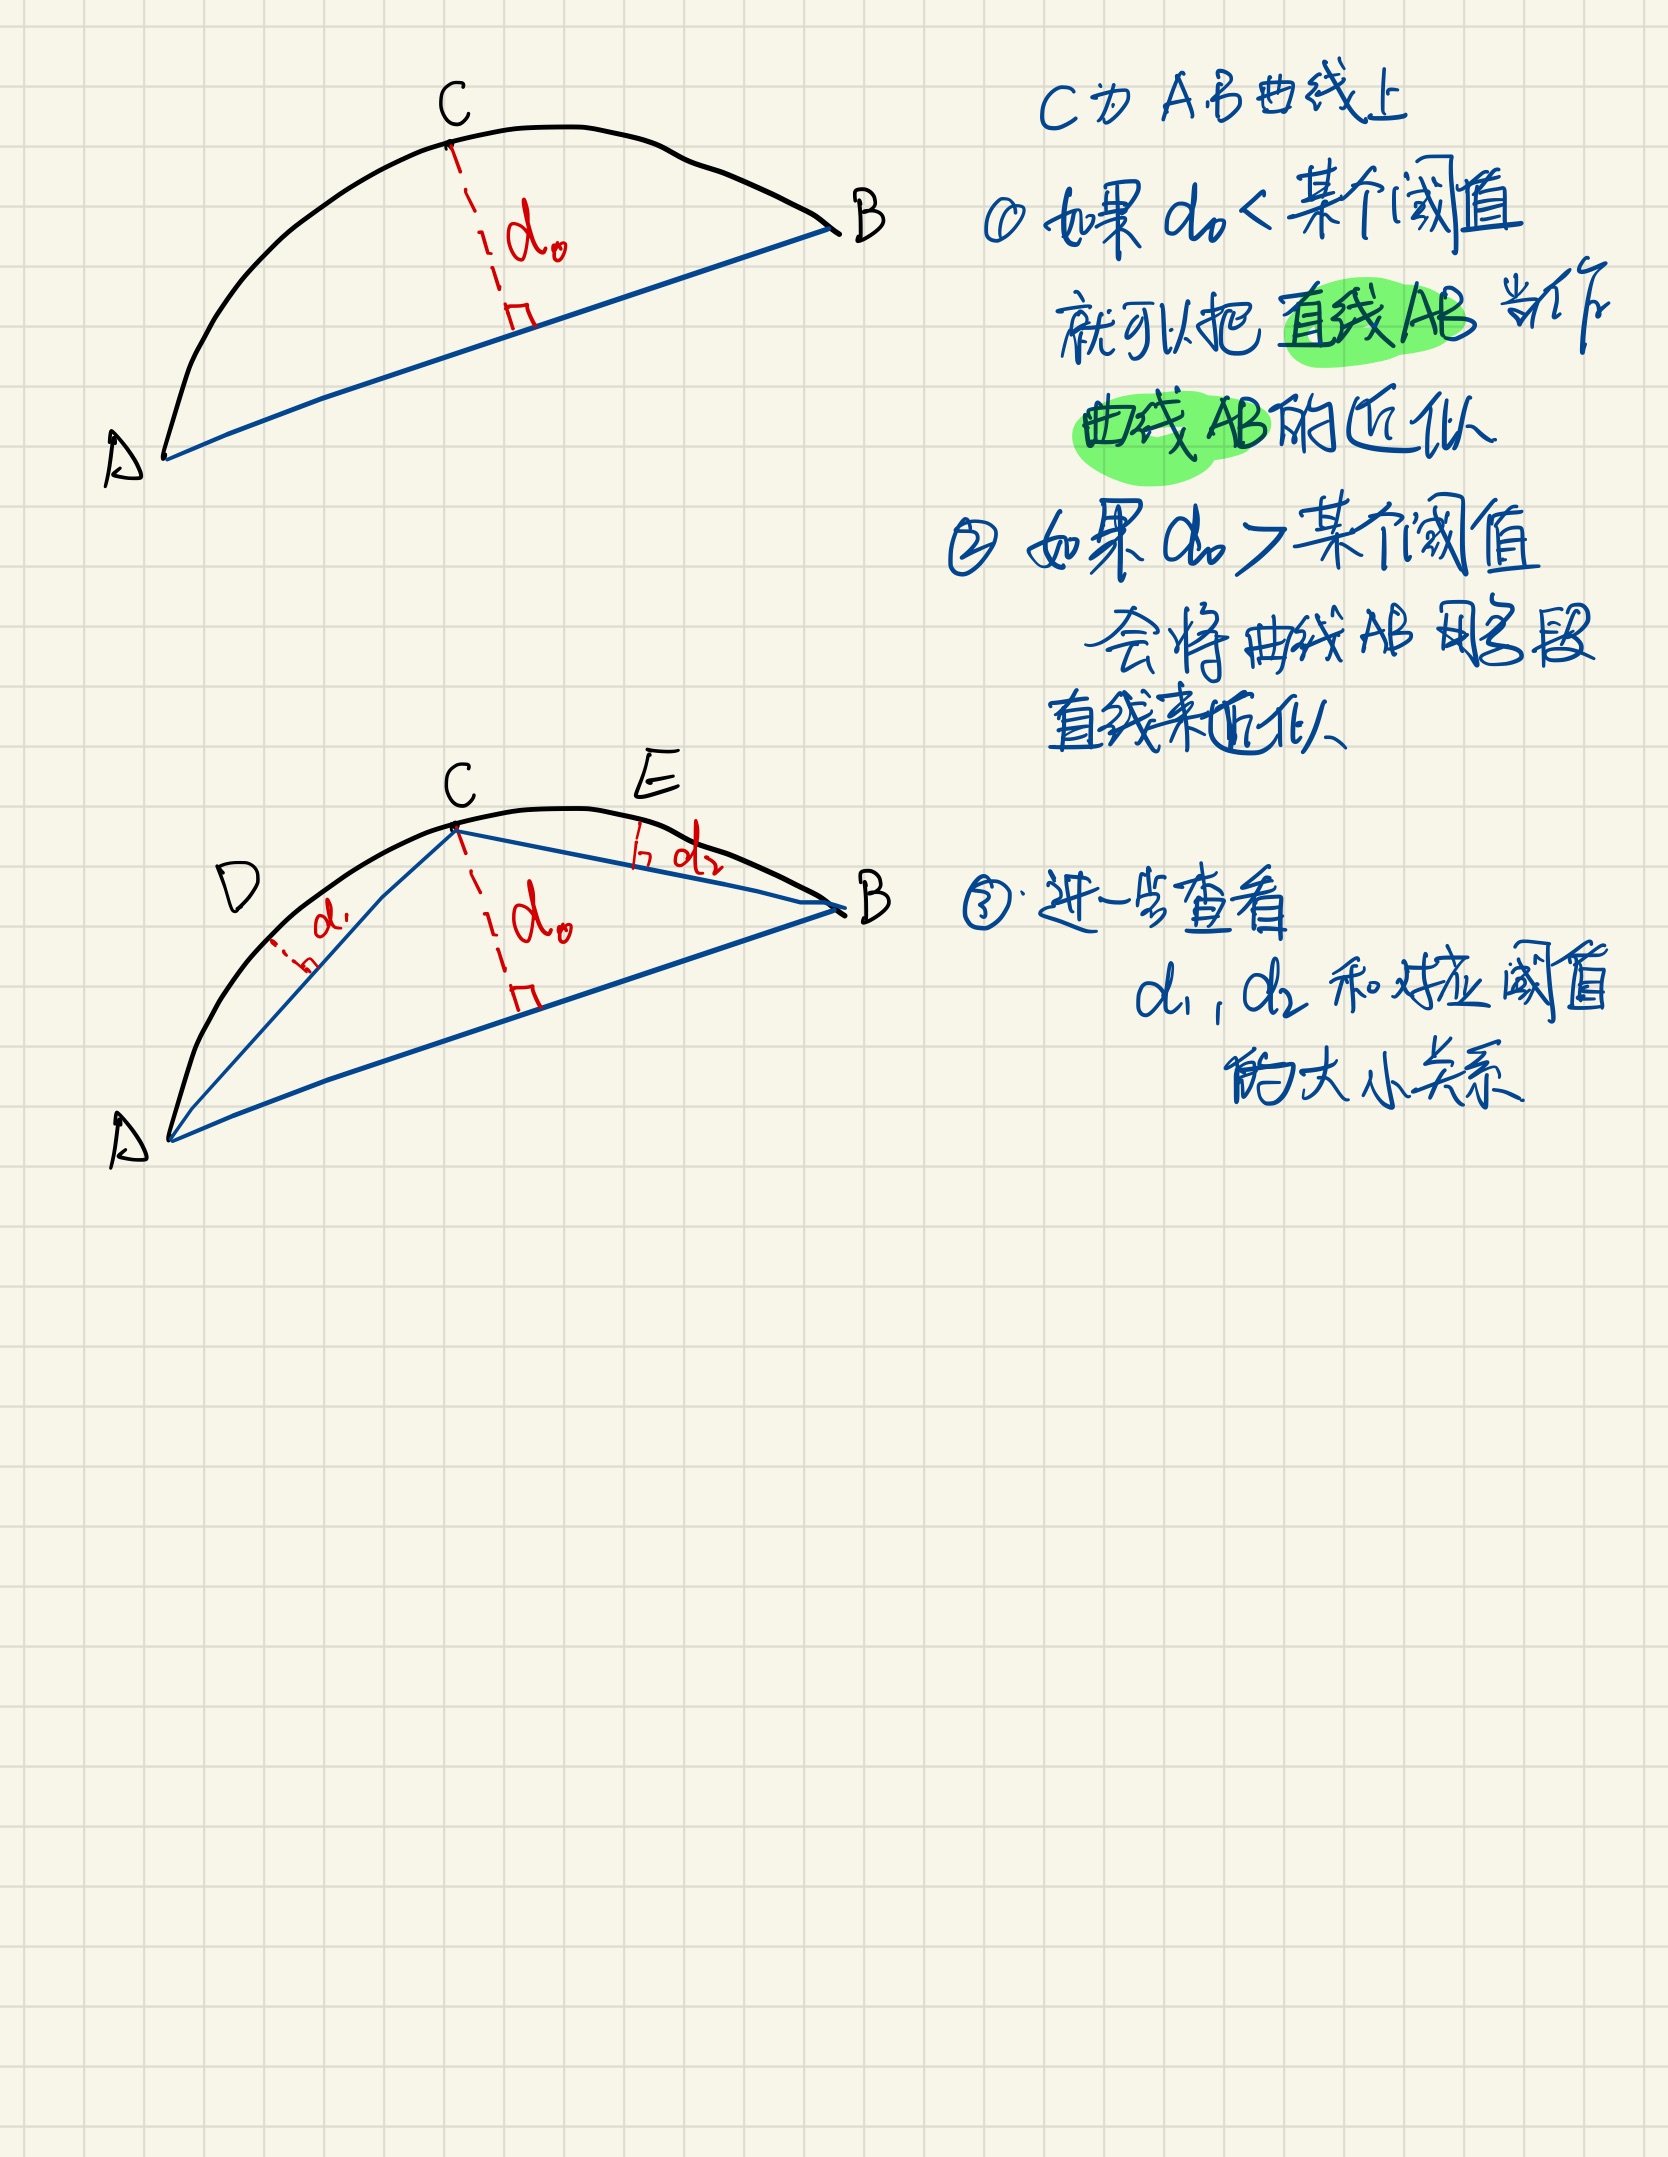 C
C为 AB曲线上
B
d₀
① 如果 d₀ < 某个阈值
就可以把 直线AB 当作
A
曲线AB的近似
② 如果 d₀ > 某个阈值
会将曲线AB 用多段
直线来近似
C
E
B
D
d₁
d₀
d₂
③. 进一步查看
d₁, d₂ 和对应阈值
的大小关系
A